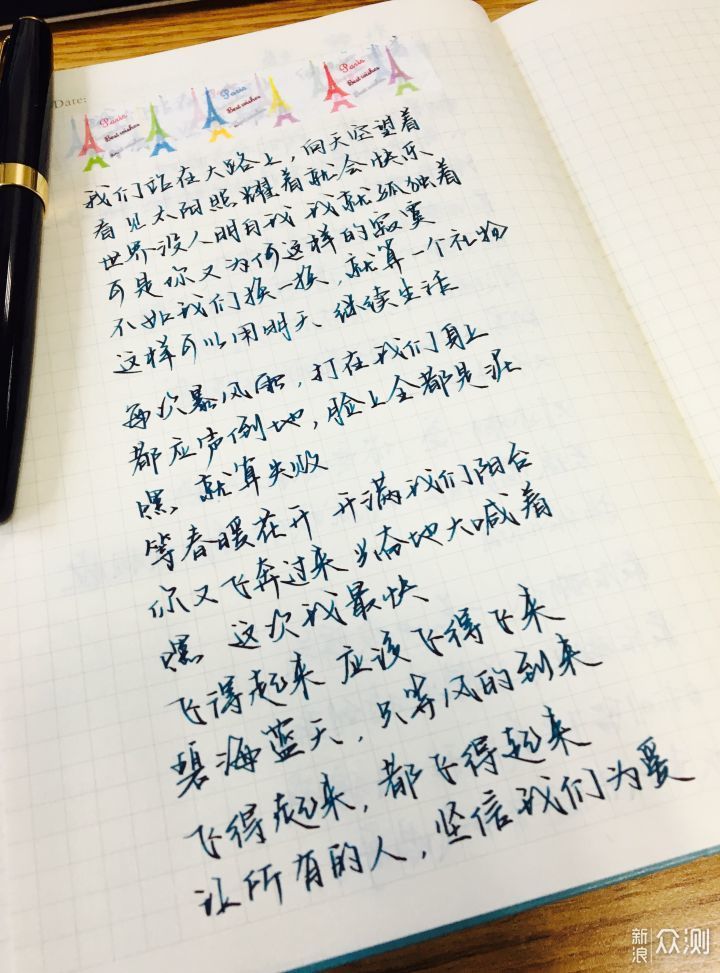 Date:
Paris
Best wishes
Paris
Best wishes
Paris
Best wishes
我们站在大路上，向天空望着
看见太阳照耀着就会快乐
世界没人明白我 我就孤独着
可是你又为何这样的寂寞
不如我们换一换，就算一个礼物
这样可以用明天 继续生活
每次暴风雨，打在我们身上
都应声倒地，脸上全都是泥
嘿 就算失败
等春暖花开 开满我们阳台
你又飞奔过来 兴奋地大喊着
嘿 这次我最快
飞得起来 应该飞得起来
碧海蓝天，只等风的到来
飞得起来，都飞得起来
让所有的人，坚信我们为爱
新浪 众测